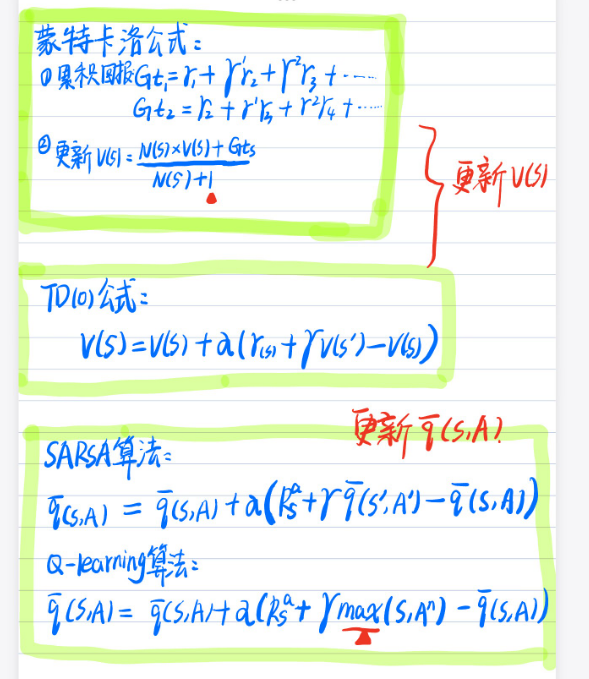 蒙特卡洛公式:
①累积回报Gt₁=r₁+γ¹r₂+γ²r₃+······
Gt₂=r₂+γ¹r₃+γ²r₄+······
②更新V(S)=N(S)×V(S)+Gts
N(S)+1
更新V(S)
TD(0)公式:
V(S)=V(S)+α(r(s)+γV(S')-V(S))
更新q̅(S,A)
SARSA算法:
q̅(S,A)=q̅(S,A)+α(Rₛᵃ+γq̅(S',A')-q̅(S,A))
Q-learning算法:
q̅(S,A)=q̅(S,A)+α(Rₛᵃ+γmax(S,Aⁿ)-q̅(S,A))